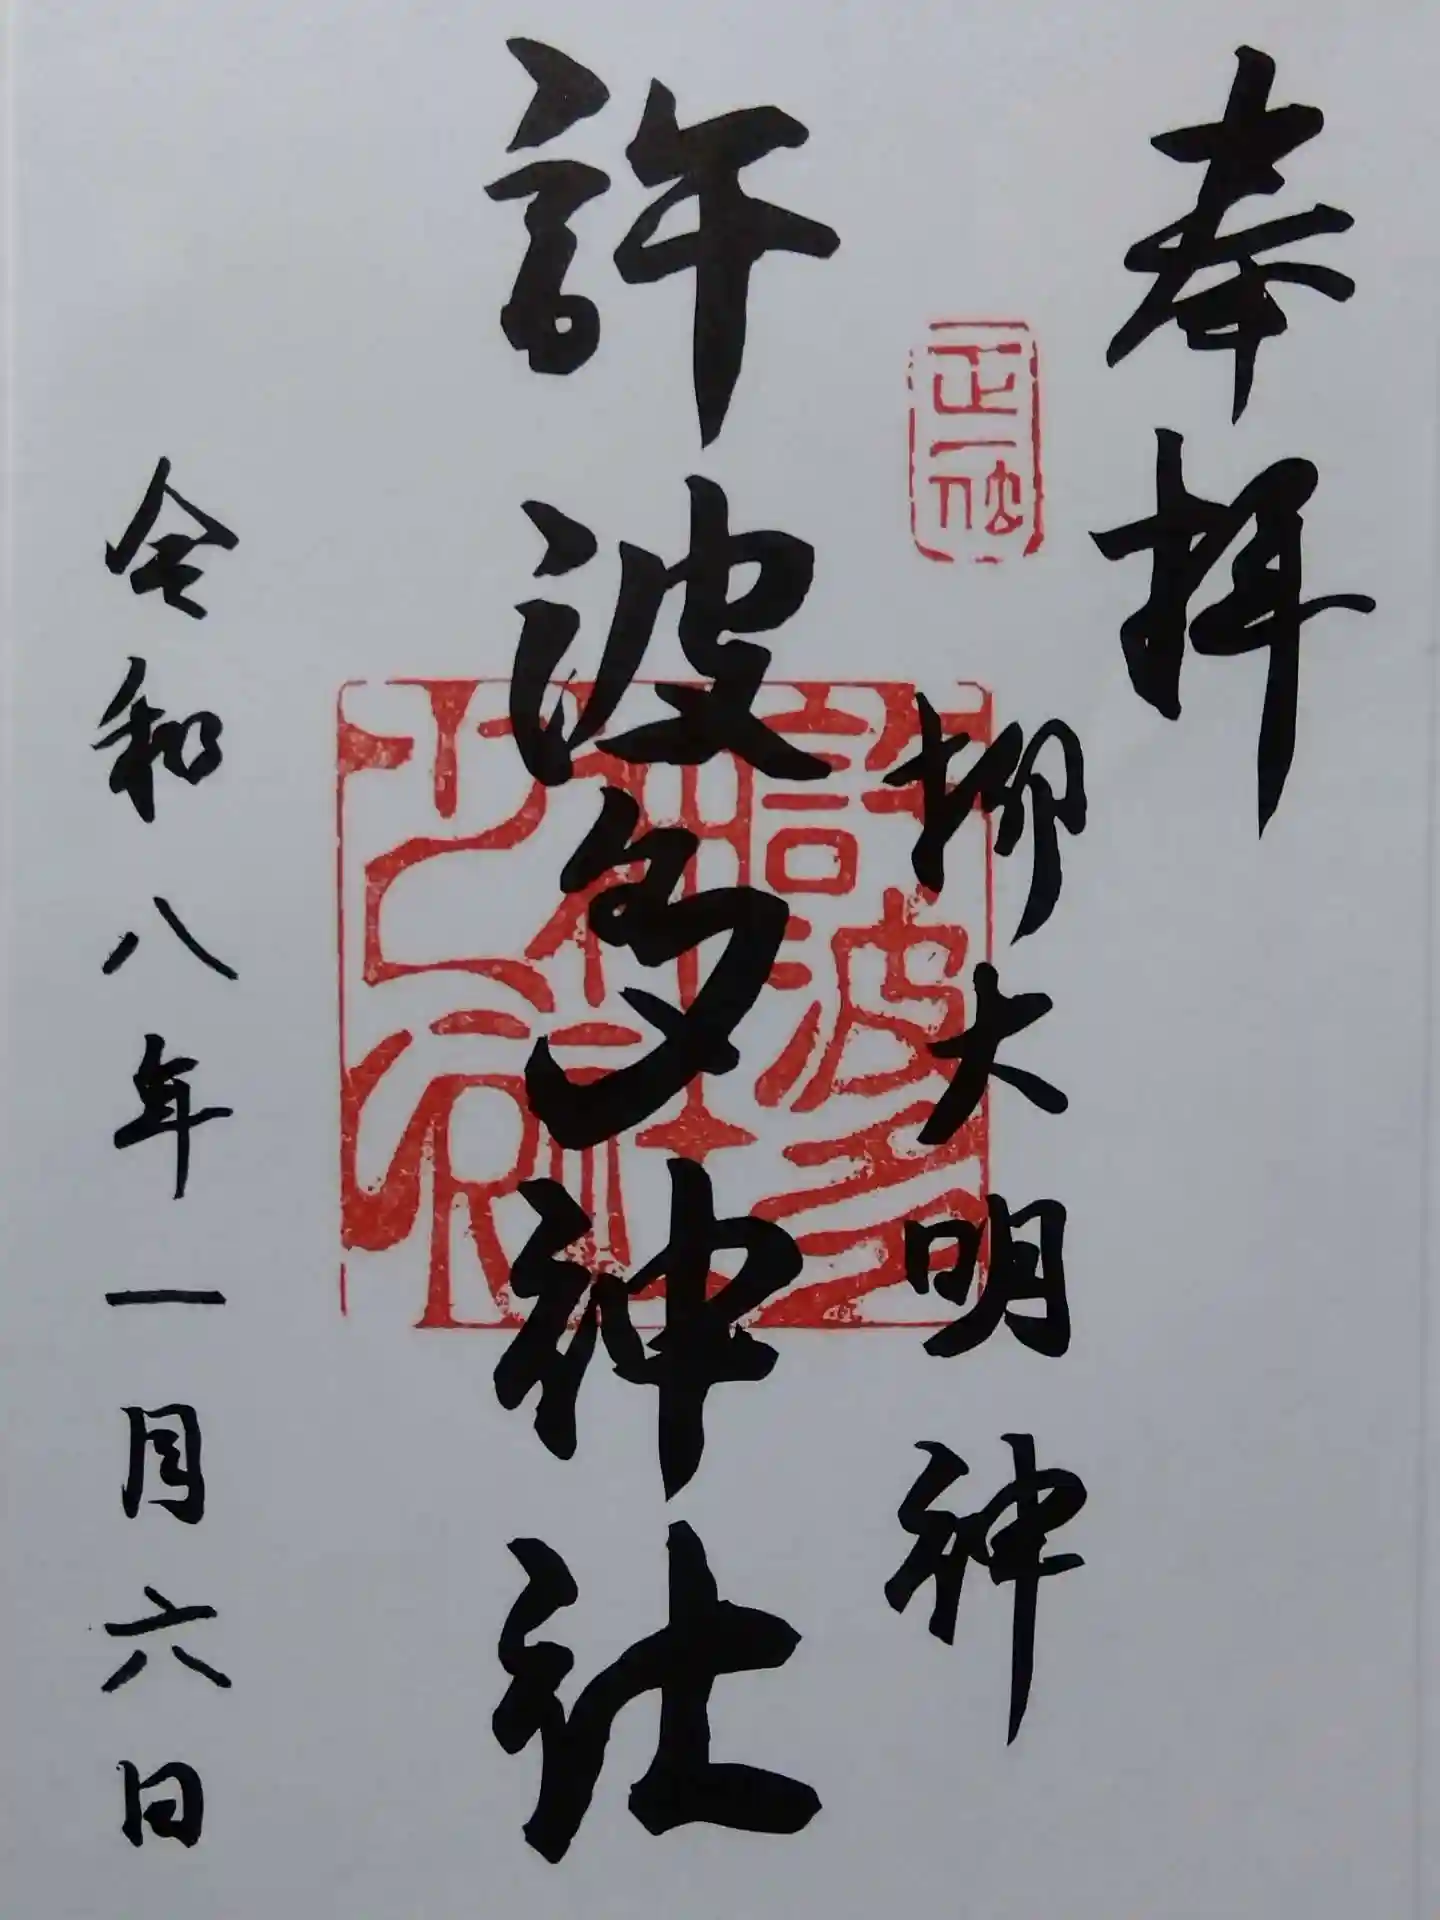 奉拝
正一位
柳大明神
許波多神社
許波多神社之印
令和八年一月六日